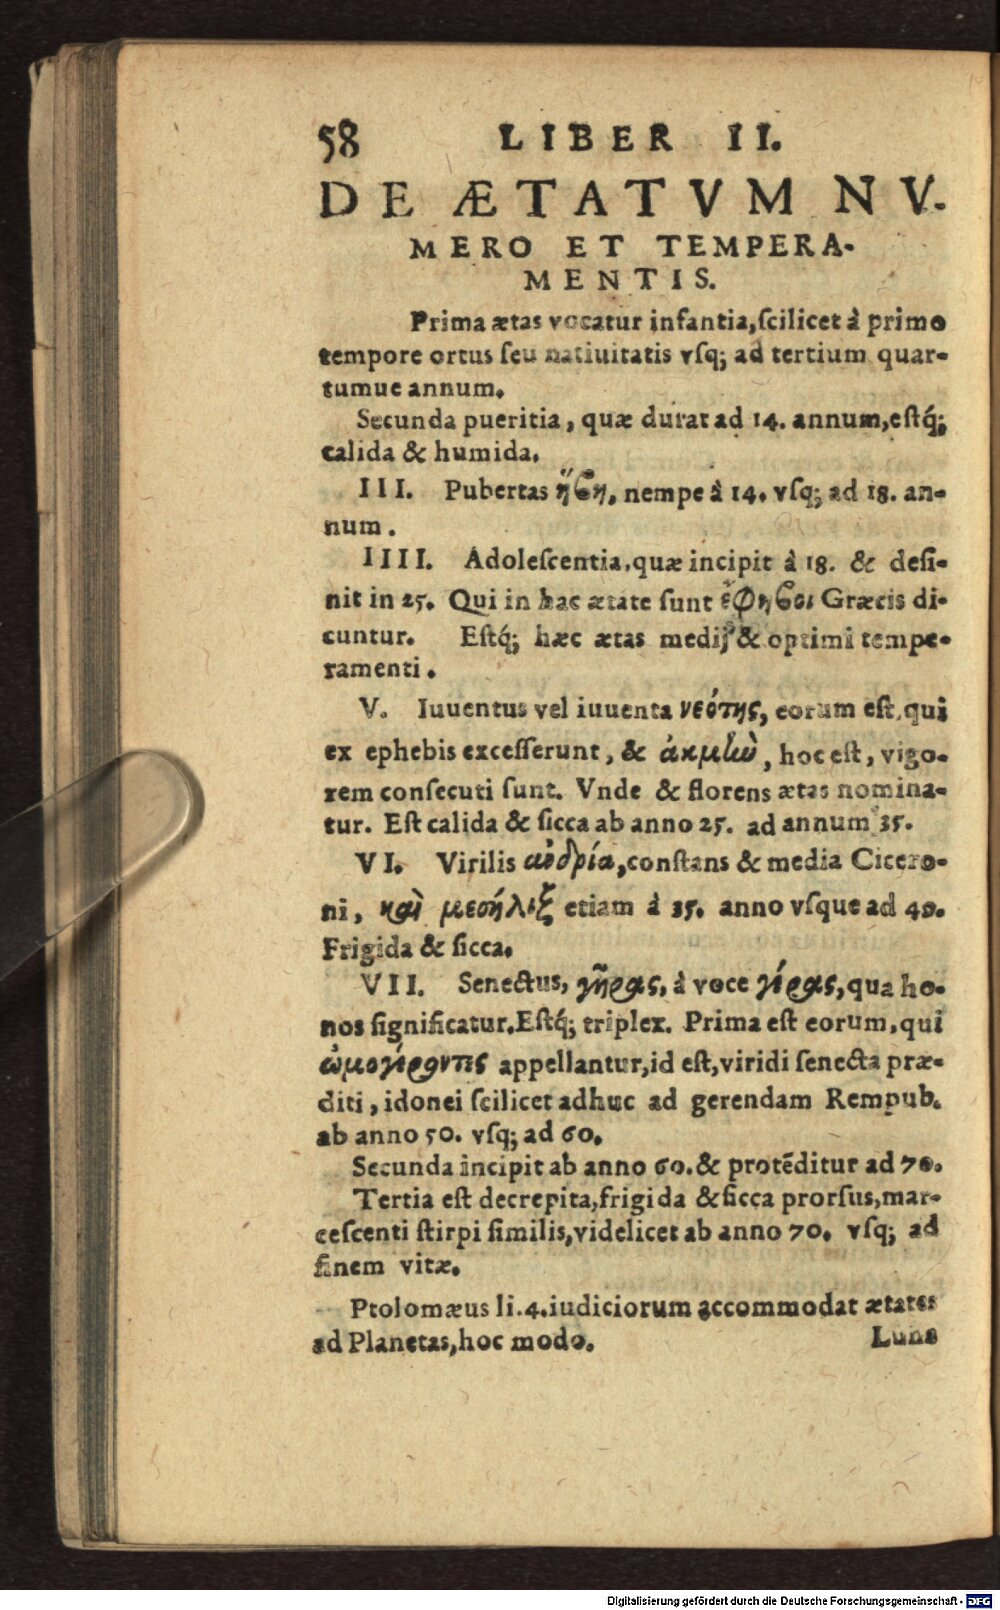 58 LIBER II.
DE ÆTATVM NV-
MERO ET TEMPERA-
MENTIS.
Prima ætas vocatur infantia, ſcilicet à primo
tempore ortus ſeu natiuitatis vſq; ad tertium quar-
tumue annum.
Secunda pueritia, quæ durat ad 14. annum, eſtq́;
calida & humida.
III. Pubertas ἥβη, nempe à 14. vſq; ad 18. an-
num.
IIII. Adoleſcentia, quæ incipit à 18. & deſi-
nit in 25. Qui in hac ætate ſunt ἔφηβοι Græcis di-
cuntur. Eſtq́; hæc ætas medij & optimi tempe-
ramenti.
V. Iuuentus vel iuuenta νεότης, eorum eſt, qui
ex ephebis exceſſerunt, & ἀκμὴν, hoc eſt, vigo-
rem conſecuti ſunt. Vnde & florens ætas nomina-
tur. Eſt calida & ſicca ab anno 25. ad annum 35.
VI. Virilis ἀνδρία, conſtans & media Cicero-
ni, καὶ μεσήλιξ etiam à 35. anno vſque ad 49.
Frigida & ſicca.
VII. Senectus, γῆρας, à voce γέρας, qua ho-
nos ſignificatur. Eſtq́; triplex. Prima eſt eorum, qui
ὠμογέροντες appellantur, id eſt, viridi ſenecta præ-
diti, idonei ſcilicet adhuc ad gerendam Rempub.
ab anno 50. vſq; ad 60.
Secunda incipit ab anno 60. & protēditur ad 70.
Tertia eſt decrepita, frigida & ſicca prorſus, mar-
ceſcenti ſtirpi ſimilis, videlicet ab anno 70. vſq; ad
finem vitæ.
Ptolomæus li. 4. iudiciorum accommodat ætates
ad Planetas, hoc modo. Luna
Digitalisierung gefördert durch die Deutsche Forschungsgemeinschaft - DFG